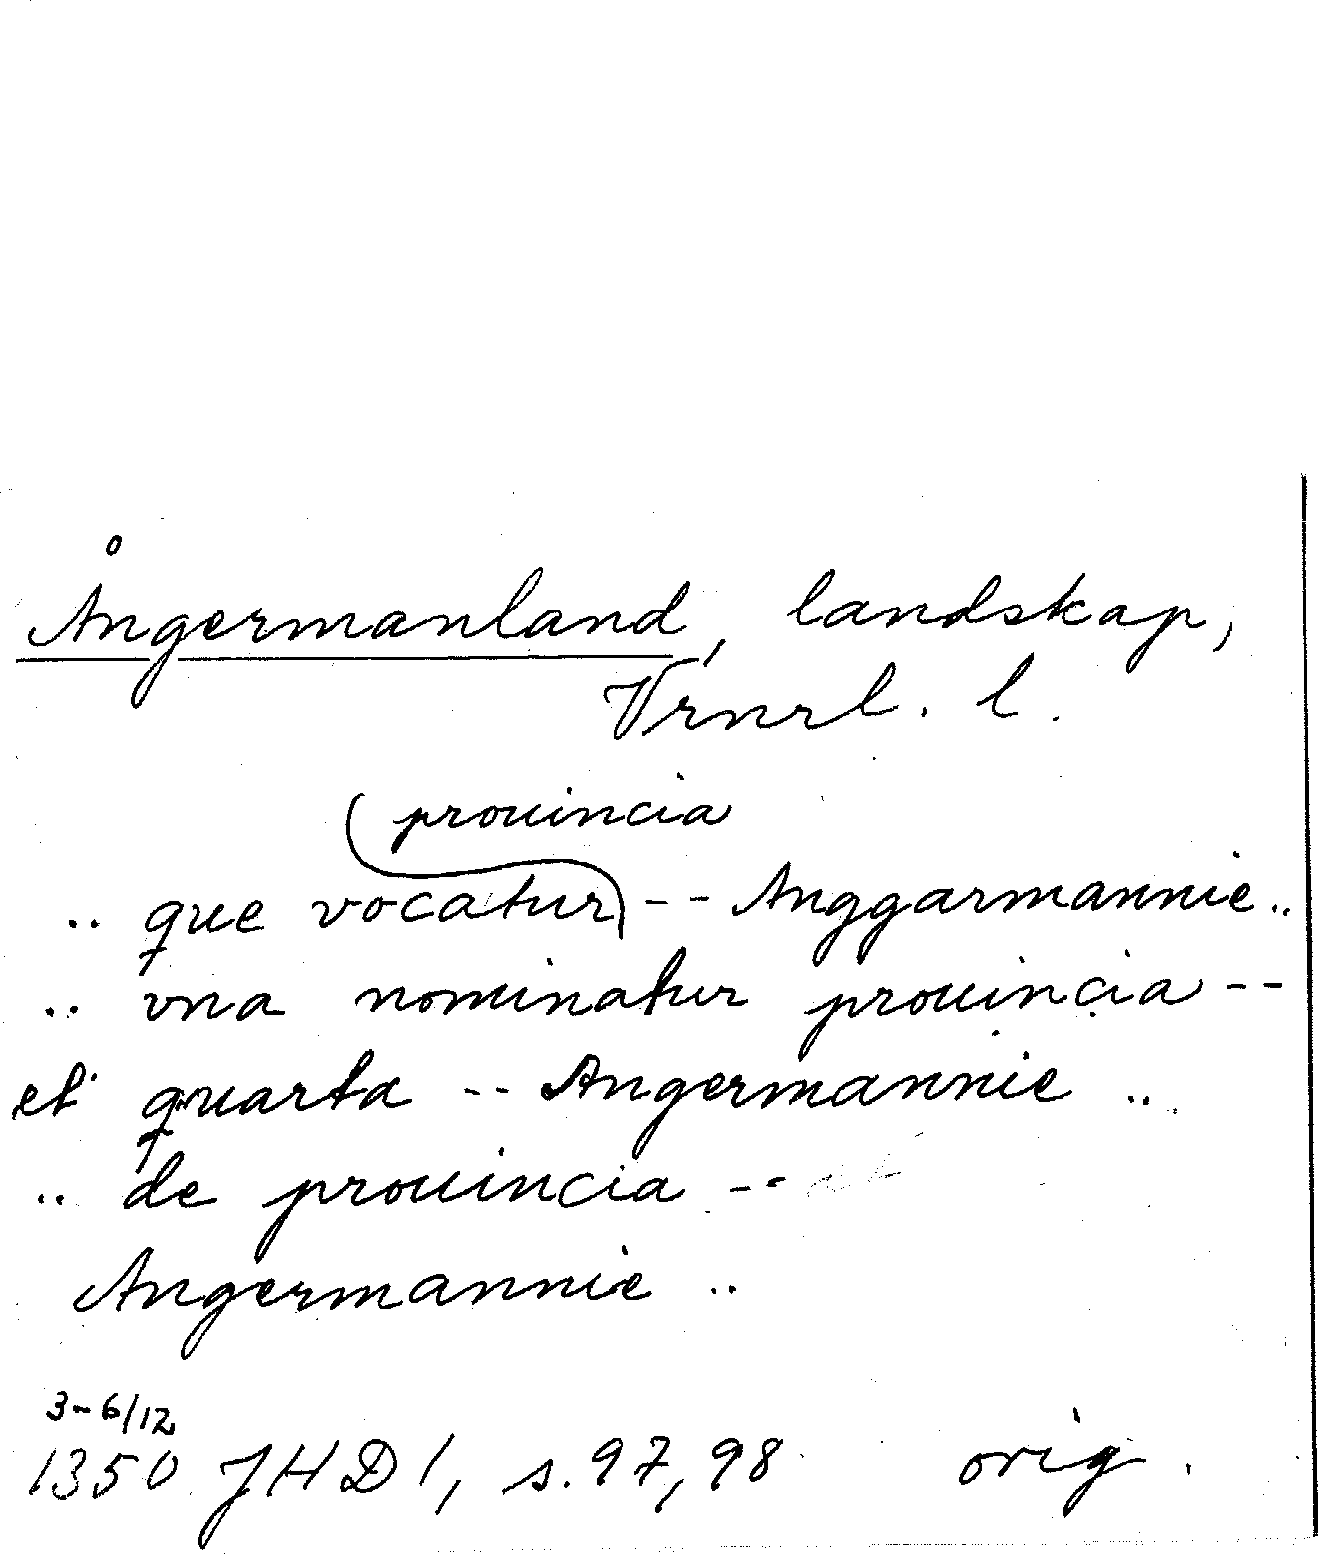 Ångermanland, landskap,
Vrnrl. l.
prouincia
.. que vocatur -- Anggarmannie..
.. vna nominatur prouincia --
et quarta -- Angermannie ..
.. de prouincia --
Angermannie ..
3-6/12
1350 JHD 1, s. 97, 98 orig.